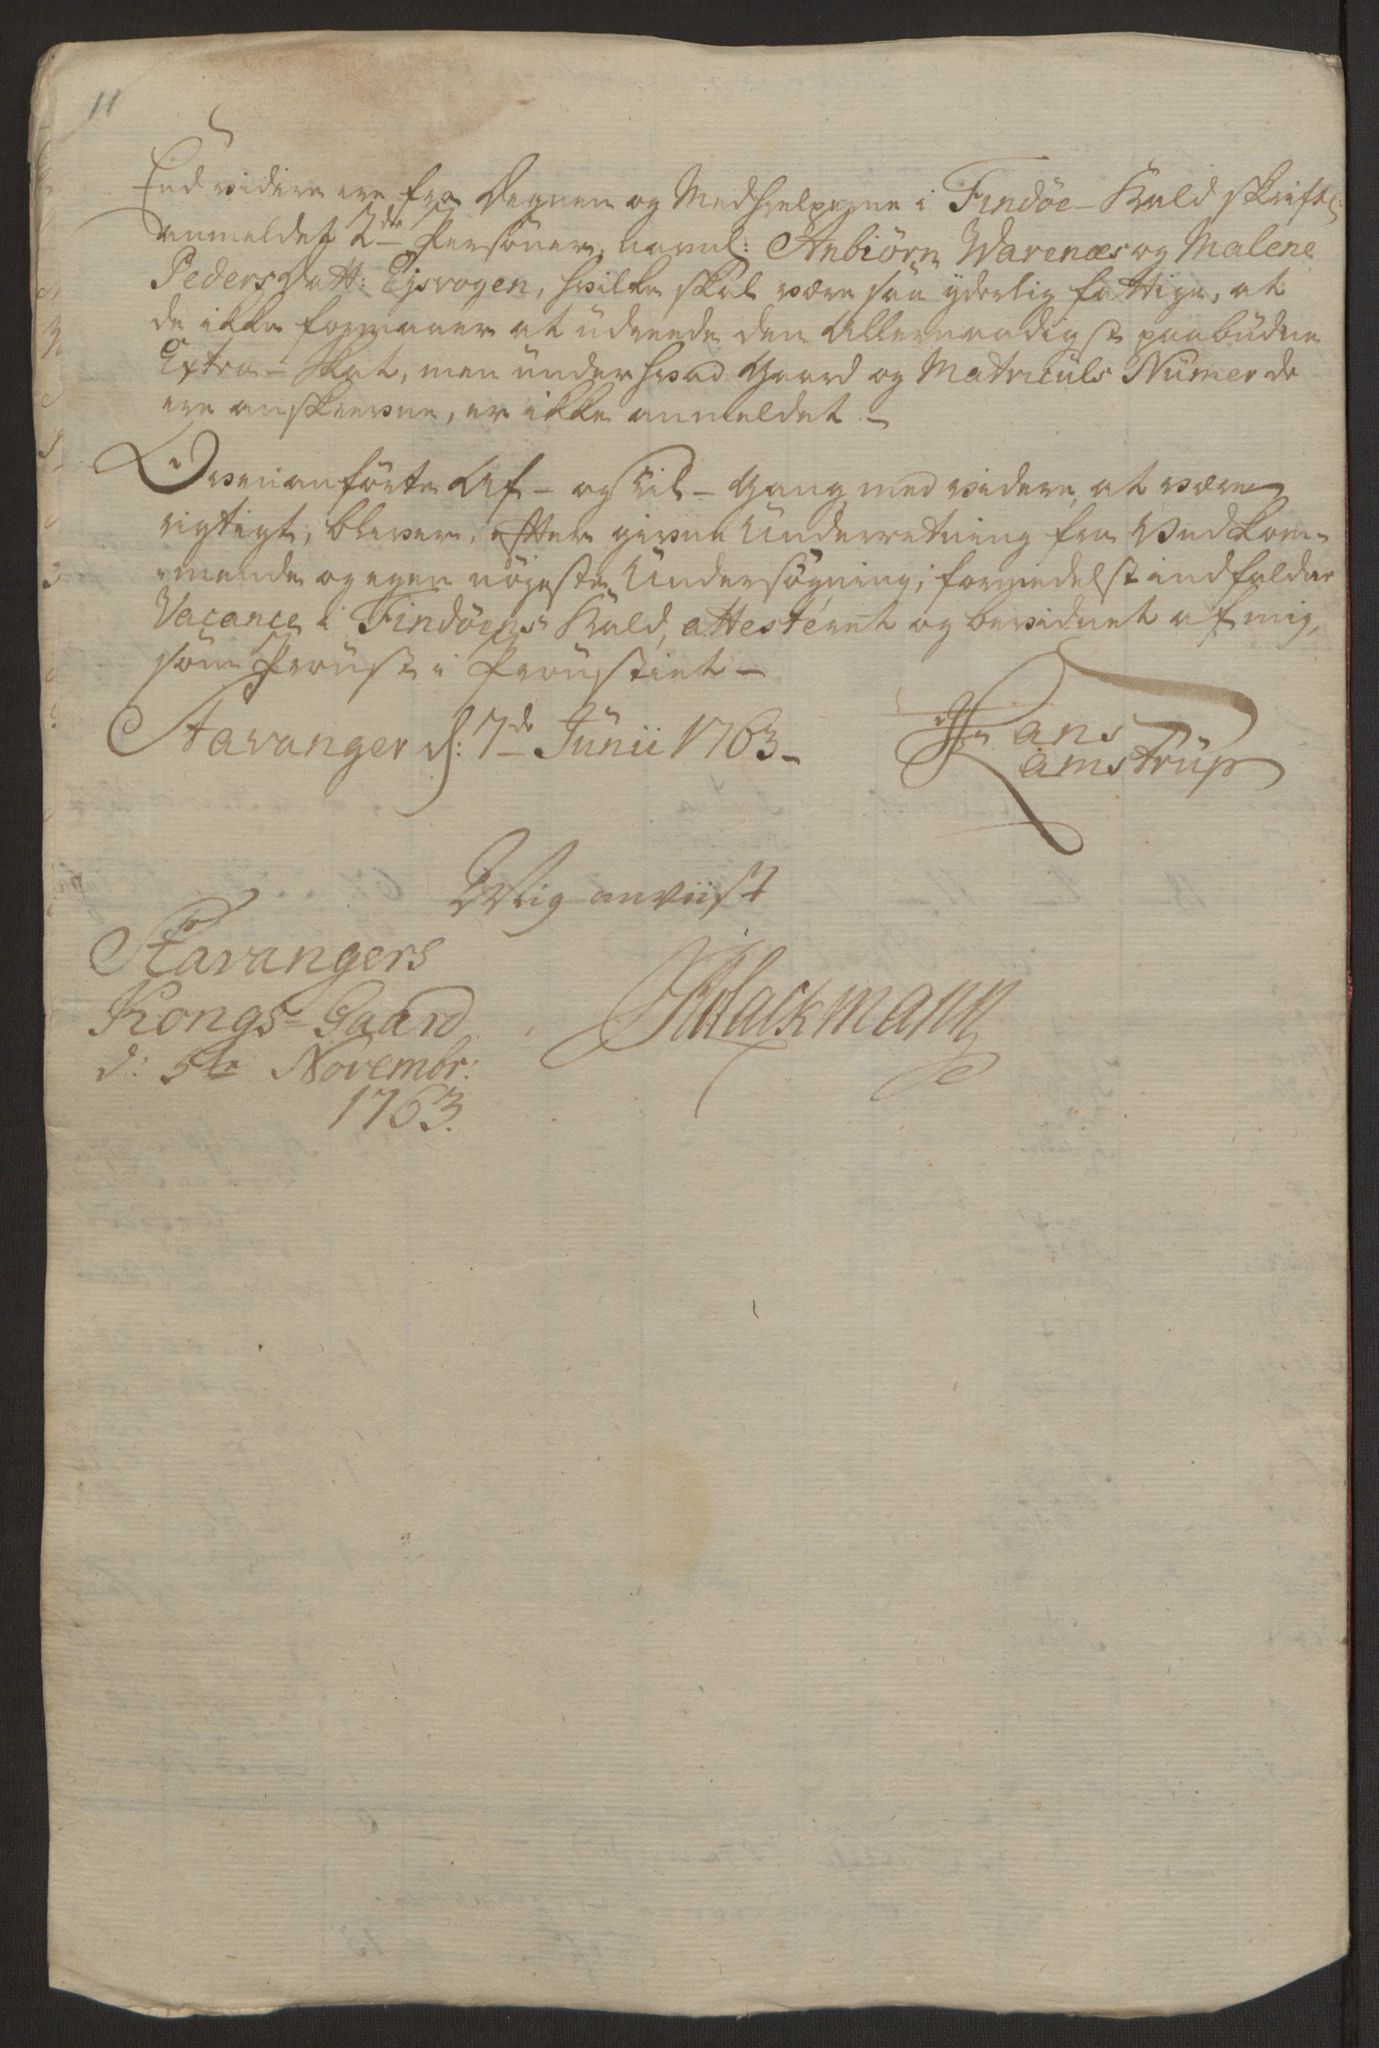 11
End videre ere fra Degnen og Medhielperne i Findöe-Kald skriftl:
anmeldet 2de Persöner, navnl: Anbiörn Warenæs og Malene
Peders Datt: Ejsvogen, hvilke skal være saa yderlig fattige, at
de ikke formaaer at üdreede den Allernaadigst paabüdne
Extra-Skat, men ünder hvad Gaard og Matriculs Nümer de
ere anskrevne, er ikke anmeldet.-
Ovenanförte Af- og Til-Gang med videre, at være
rigtigt, bliver, efter givne Ünderretning fra Vedkom-
mende og egen nöjeste Ündersögning, formedelst indfalden
Vacance i Findöens Kald, attesteret og bevidnet af mig,
som Proust i Proustiet-
Stavanger d: 7de Junii 1763-
Hans
Ramstrüp
Mig anviist
Stavangers
Kongs-Gaard
d: 5te Novembr:
1763.